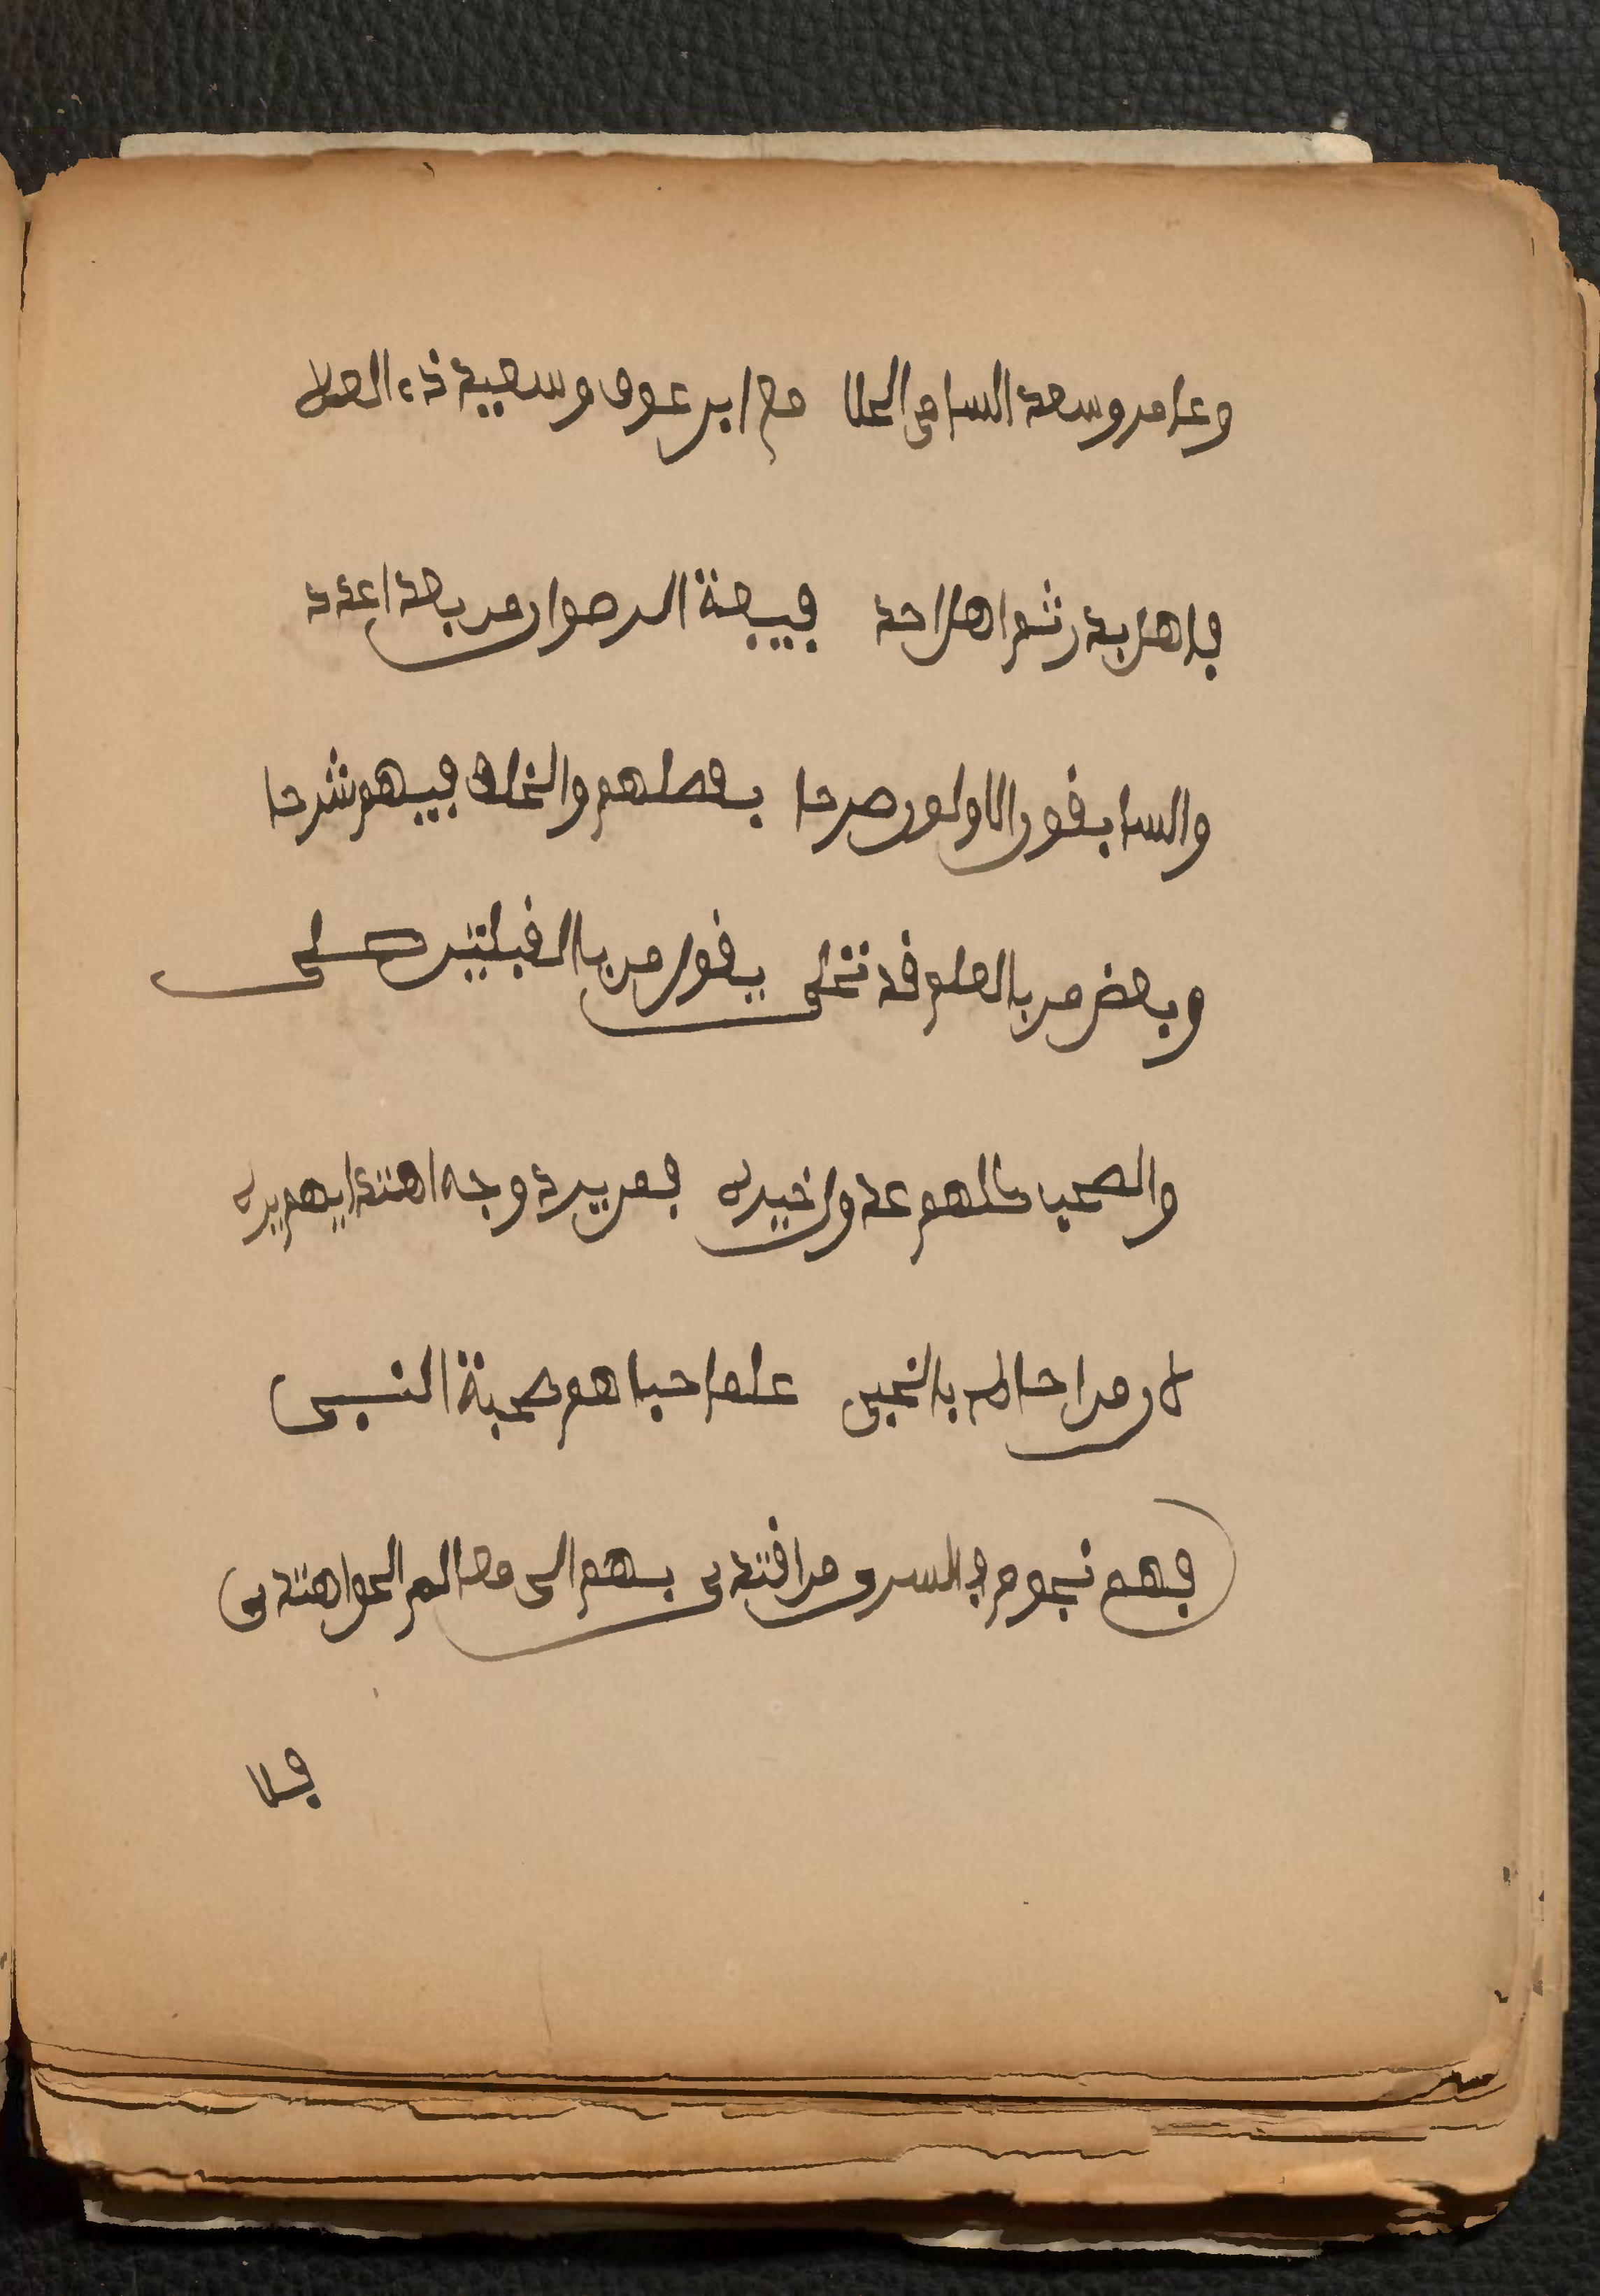 وعامر وسعد السامى العلا مع ابن عوف وسعيد ذى العلا
فاهل بدر ثم اهل احد فبيعة الرضوان من بعد اعدد
والسابقون الاولون صرحا بفضلهم والخلف فيهم شرحا
وبعض من بالعلم قد تحلى يقول من بالقبلتين صلى
والصحب كلهم عدول خيره فمن يرد وجه اهتدا بهم يره
لان من احاط بالغيب علما حباهم صحبة النبي
فهم نجوم في السرو من اقتدى بهم الى معالم الحق اهتدى
فلا